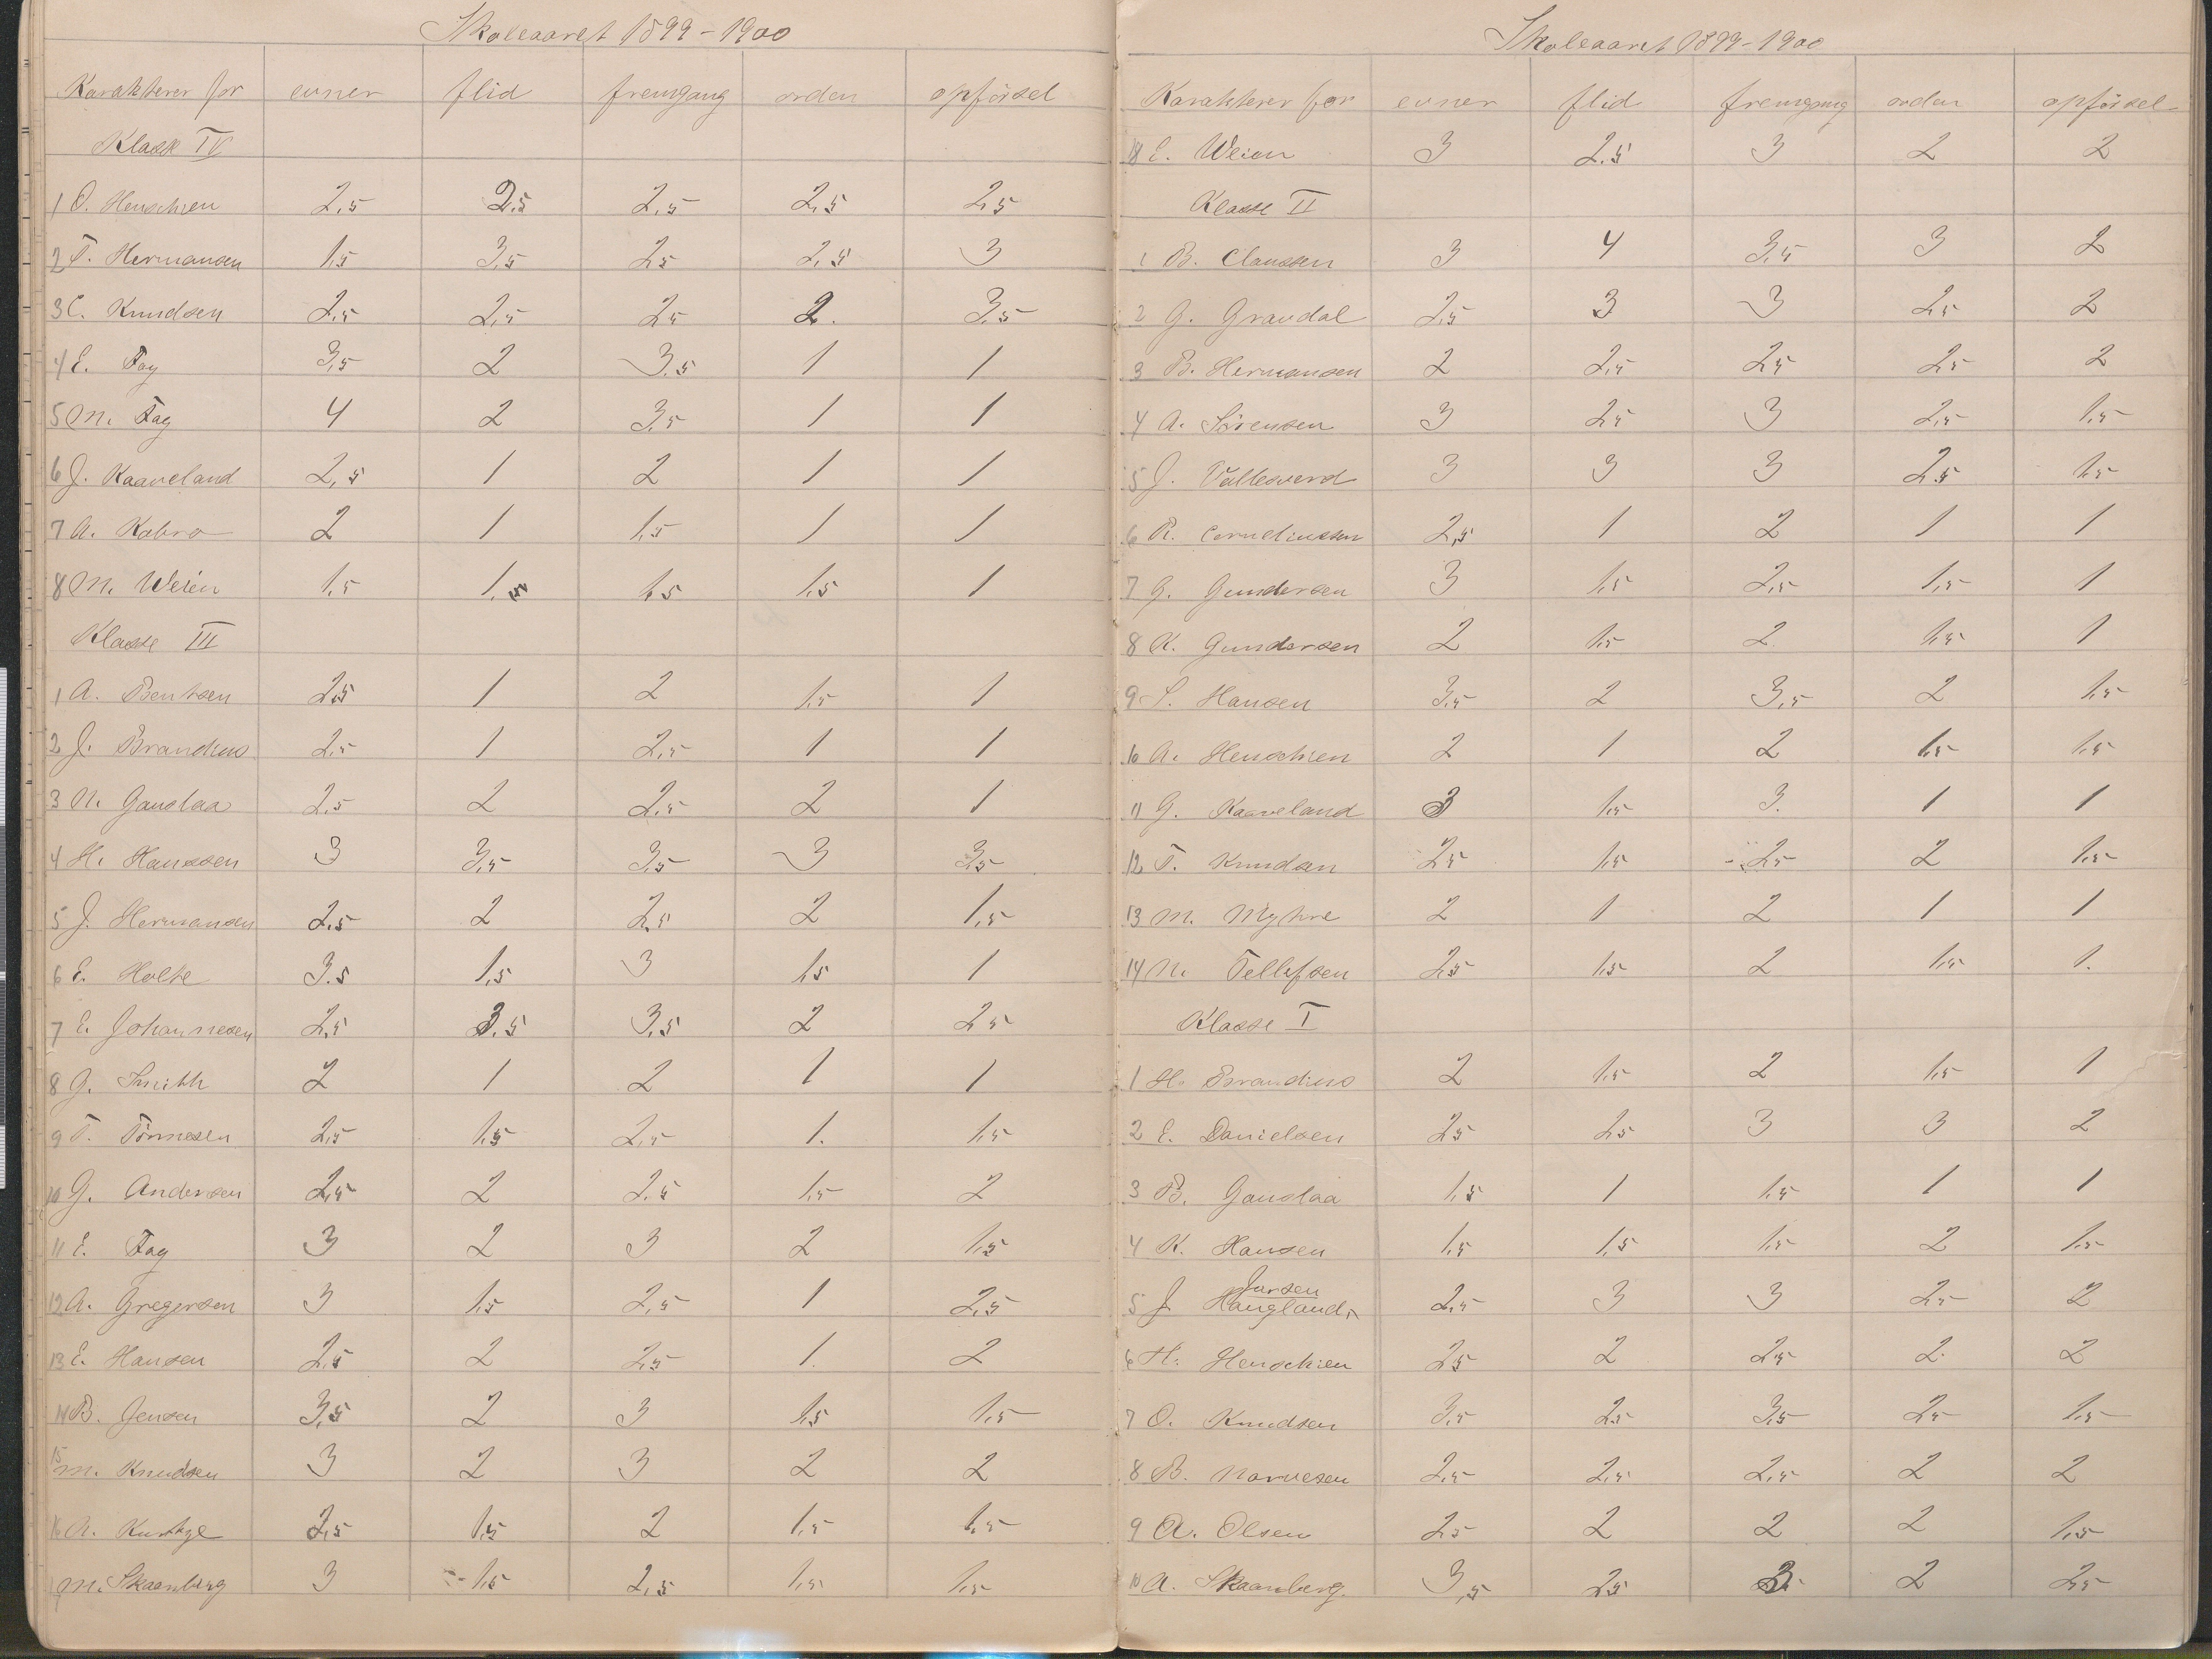 Skoleaaret 1899-1900
Karakterer for evner flid fremgang orden opførsel
Klasse IV
1 O. Henschien 2,5 2,5 2,5 2,5 2,5
2 T. Hermansen 1,5 3,5 2,5 2,5 3
3 C. Knudsen 2,5 2,5 2,5 2. 3,5
4 E. Fay 3,5 2 3.5 1 1
5 M. Fay 4 2 3,5 1 1
6 J. Kaaveland 2,5 1 2 1 1
7 A. Kabro 2 1 1,5 1 1
8 M. Weien 1,5 1,5 1,5 1,5 1
Klasse III
1 A. Bentsen 2,5 1 2 1,5 1
2 J. Brandius 2,5 1 2,5 1 1
3 N. Gauslaa 2,5 2 2,5 2 1
4 H. Hanssen 3 3,5 3,5 3 3,5
5 J. Hermansen 2,5 2 2,5 2 1,5
6 E. Holte 3.5 1,5 3 1,5 1
7 E. Johannesen 2,5 3.5 3,5 2 2,5
8 G. Smith 2 1 2 1 1
9 T. Tönnesen 2,5 1,5 2,5 1. 1,5
10 G. Andersen 2,5 2 2,5 1,5 2
11 E. Fay 3 2 3 2 1,5
12 A. Gregersen 3 1,5 2,5 1 2,5
13 E. Hansen 2,5 2 2,5 1. 2
14 B. Jensen 3,5 2 3 1,5 1,5
15 M. Knudsen 3 2 3 2 2
16 A. 2,5 1,5 2 1,5 1,5
17 M. Skaanberg 3 1,5 2,5 1,5 1,5
Skoleaaret 1899-1900
Karakterer for evner flid fremgang orden opførsel
18 E. Weien 3 2.5 3 2 2
Klasse II
1 B. Claussen 3 4 3,5 3 2
2 G. Grandal 2,5 3 3 2,5 2
3 B. Hermansen 2 2,5 2,5 2,5 2
4 A. Sörensen 3 2,5 3 2,5 1,5
5 J. Vallesverd 3 3 3 2,5 1,5
6 R. Corneliussen 2,5 1 2 1 1
7 G. Gundersen 3 1,5 2,5 1,5 1
8 K. Gundersen 2 1,5 2 1,5 1
9 S. Hansen 3,5 2 3,5 2 1,5
10 A. Henschien 2 1 2 1,5 1,5
11 G. Kaaveland 3 1,5 3. 1 1
12 T. Knudsen 2,5 1,5 2,5 2 1,5
13 M. Myhre 2 1 2 1 1
14 N. Tellefsen 2,5 1,5 2 1,5 1.
Klasse I
1 H. Brandius 2 1,5 2 1,5 1
2 E. Danielsen 2,5 2,5 3 3 2
3 B. Gauslaa 1,5 1 1,5 1 1
4 K. Hansen 1,5 1,5 1,5 2 1,5
Jarsen
5 J. Haugland 2,5 3 3 2,5 2
6 H. Henschien 2,5 2 2,5 2. 2
7 O. Knudsen 3,5 2,5 3,5 2,5 1,5
8 B. Narvesen 2,5 2,5 2,5 2 2
9 A. Olsen 2,5 2 2 2 1,5
10 A. Skaanberg. 3,5 2,5 3 2 2,5